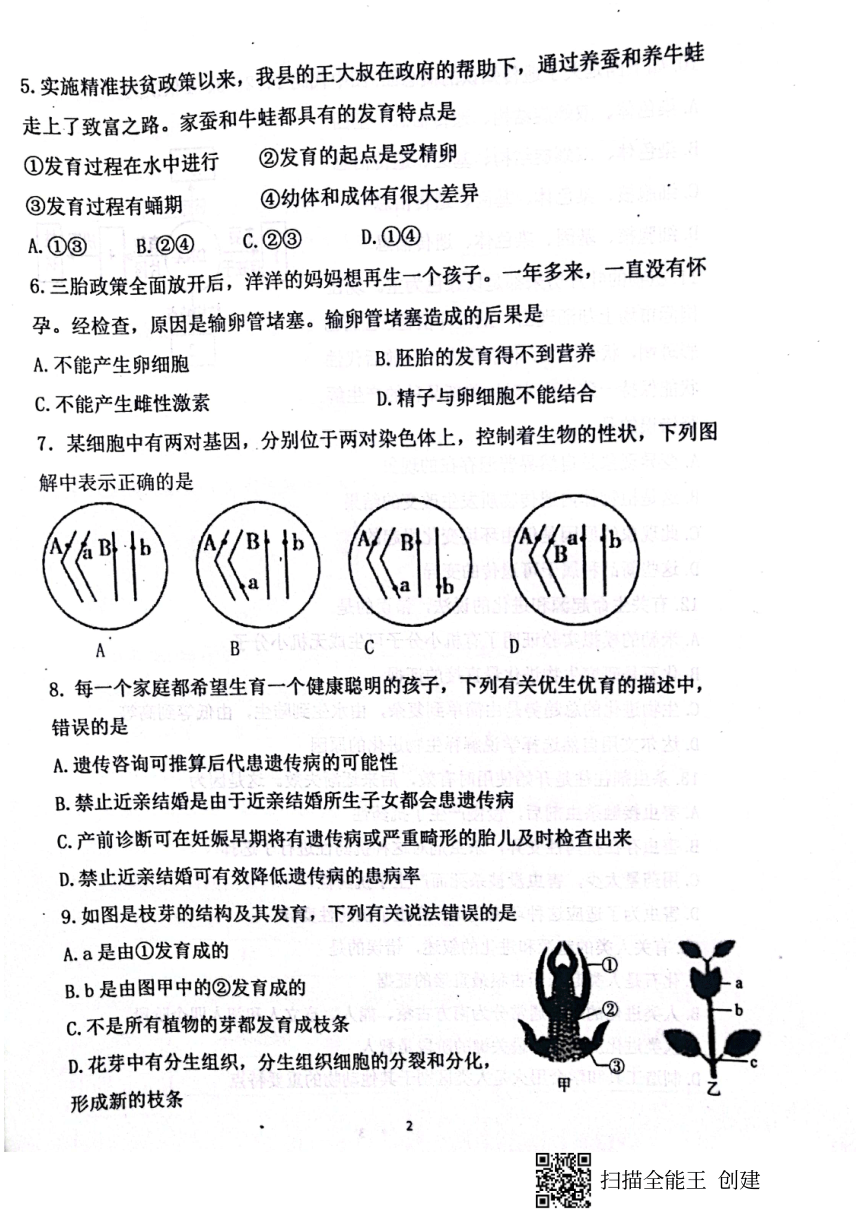 5.实施精准扶贫政策以来，我县的王大叔在政府的帮助下，通过养蚕和养牛蛙
走上了致富之路。家蚕和牛蛙都具有的发育特点是
①发育过程在水中进行 ②发育的起点是受精卵
③发育过程有蛹期 ④幼体和成体有很大差异
A.①③ B.②④ C.②③ D.①④
6.三胎政策全面放开后，洋洋的妈妈想再生一个孩子。一年多来，一直没有怀
孕。经检查，原因是输卵管堵塞。输卵管堵塞造成的后果是
A.不能产生卵细胞 B.胚胎的发育得不到营养
C.不能产生雌性激素 D.精子与卵细胞不能结合
7. 某细胞中有两对基因，分别位于两对染色体上，控制着生物的性状，下列图
解中表示正确的是
A a B b
A B b a
A B a b
A a b B
A B C D
8. 每一个家庭都希望生育一个健康聪明的孩子，下列有关优生优育的描述中，
错误的是
A.遗传咨询可推算后代患遗传病的可能性
B.禁止近亲结婚是由于近亲结婚所生子女都会患遗传病
C.产前诊断可在妊娠早期将有遗传病或严重畸形的胎儿及时检查出来
D.禁止近亲结婚可有效降低遗传病的患病率
9.如图是枝芽的结构及其发育，下列有关说法错误的是
A.a是由①发育成的
B.b是由图甲中的②发育成的
C.不是所有植物的芽都发育成枝条
D.花芽中有分生组织，分生组织细胞的分裂和分化，
形成新的枝条
①
②
③
甲
a
b
c
乙
2
扫描全能王 创建